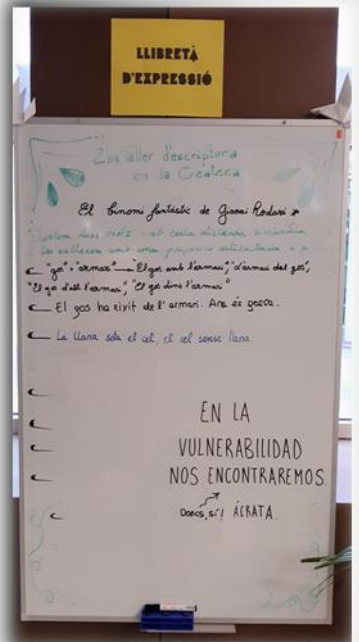 LLIBRETÀ
D'EXPRESSIÓ
2on taller d'escriptura
en la Createca
El binomi fantàstic de Gianni Rodari
dos mots amb certa distància semàntica
amb una preposició articulada, e.p.
"gos" i "armari" → "El gos amb l'armari", "L'armari del gos",
"El gos dalt l'armari", "El gos dins l'armari"
El gos ha eixit de l'armari. Ara és gossa.
La llana sota el cel, el cel sense llana.
EN LA
VULNERABILIDAD
NOS ENCONTRAREMOS
Doncs, sí! ÀCRATA.